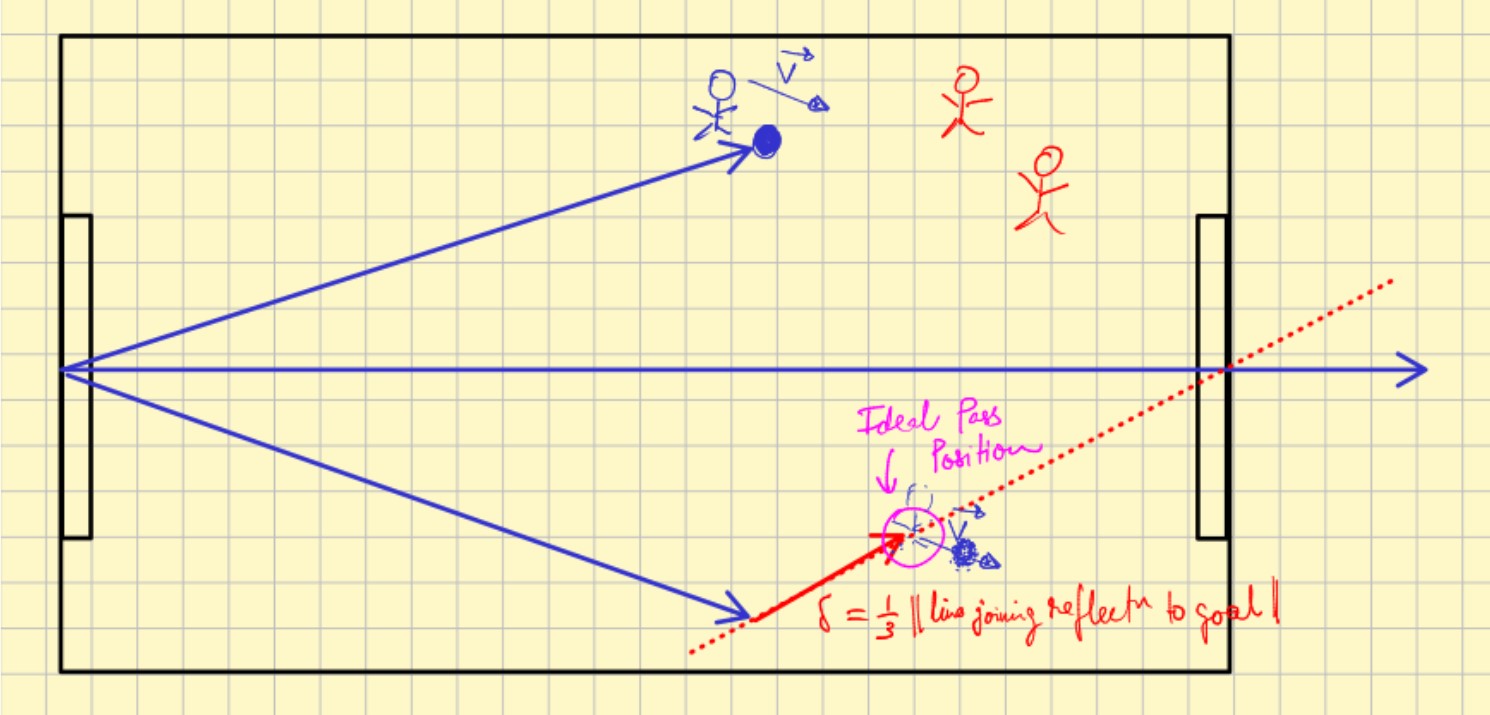 V
Ideal Pass
Position
V
δ = 1/3 || line joining reflectn to goal ||